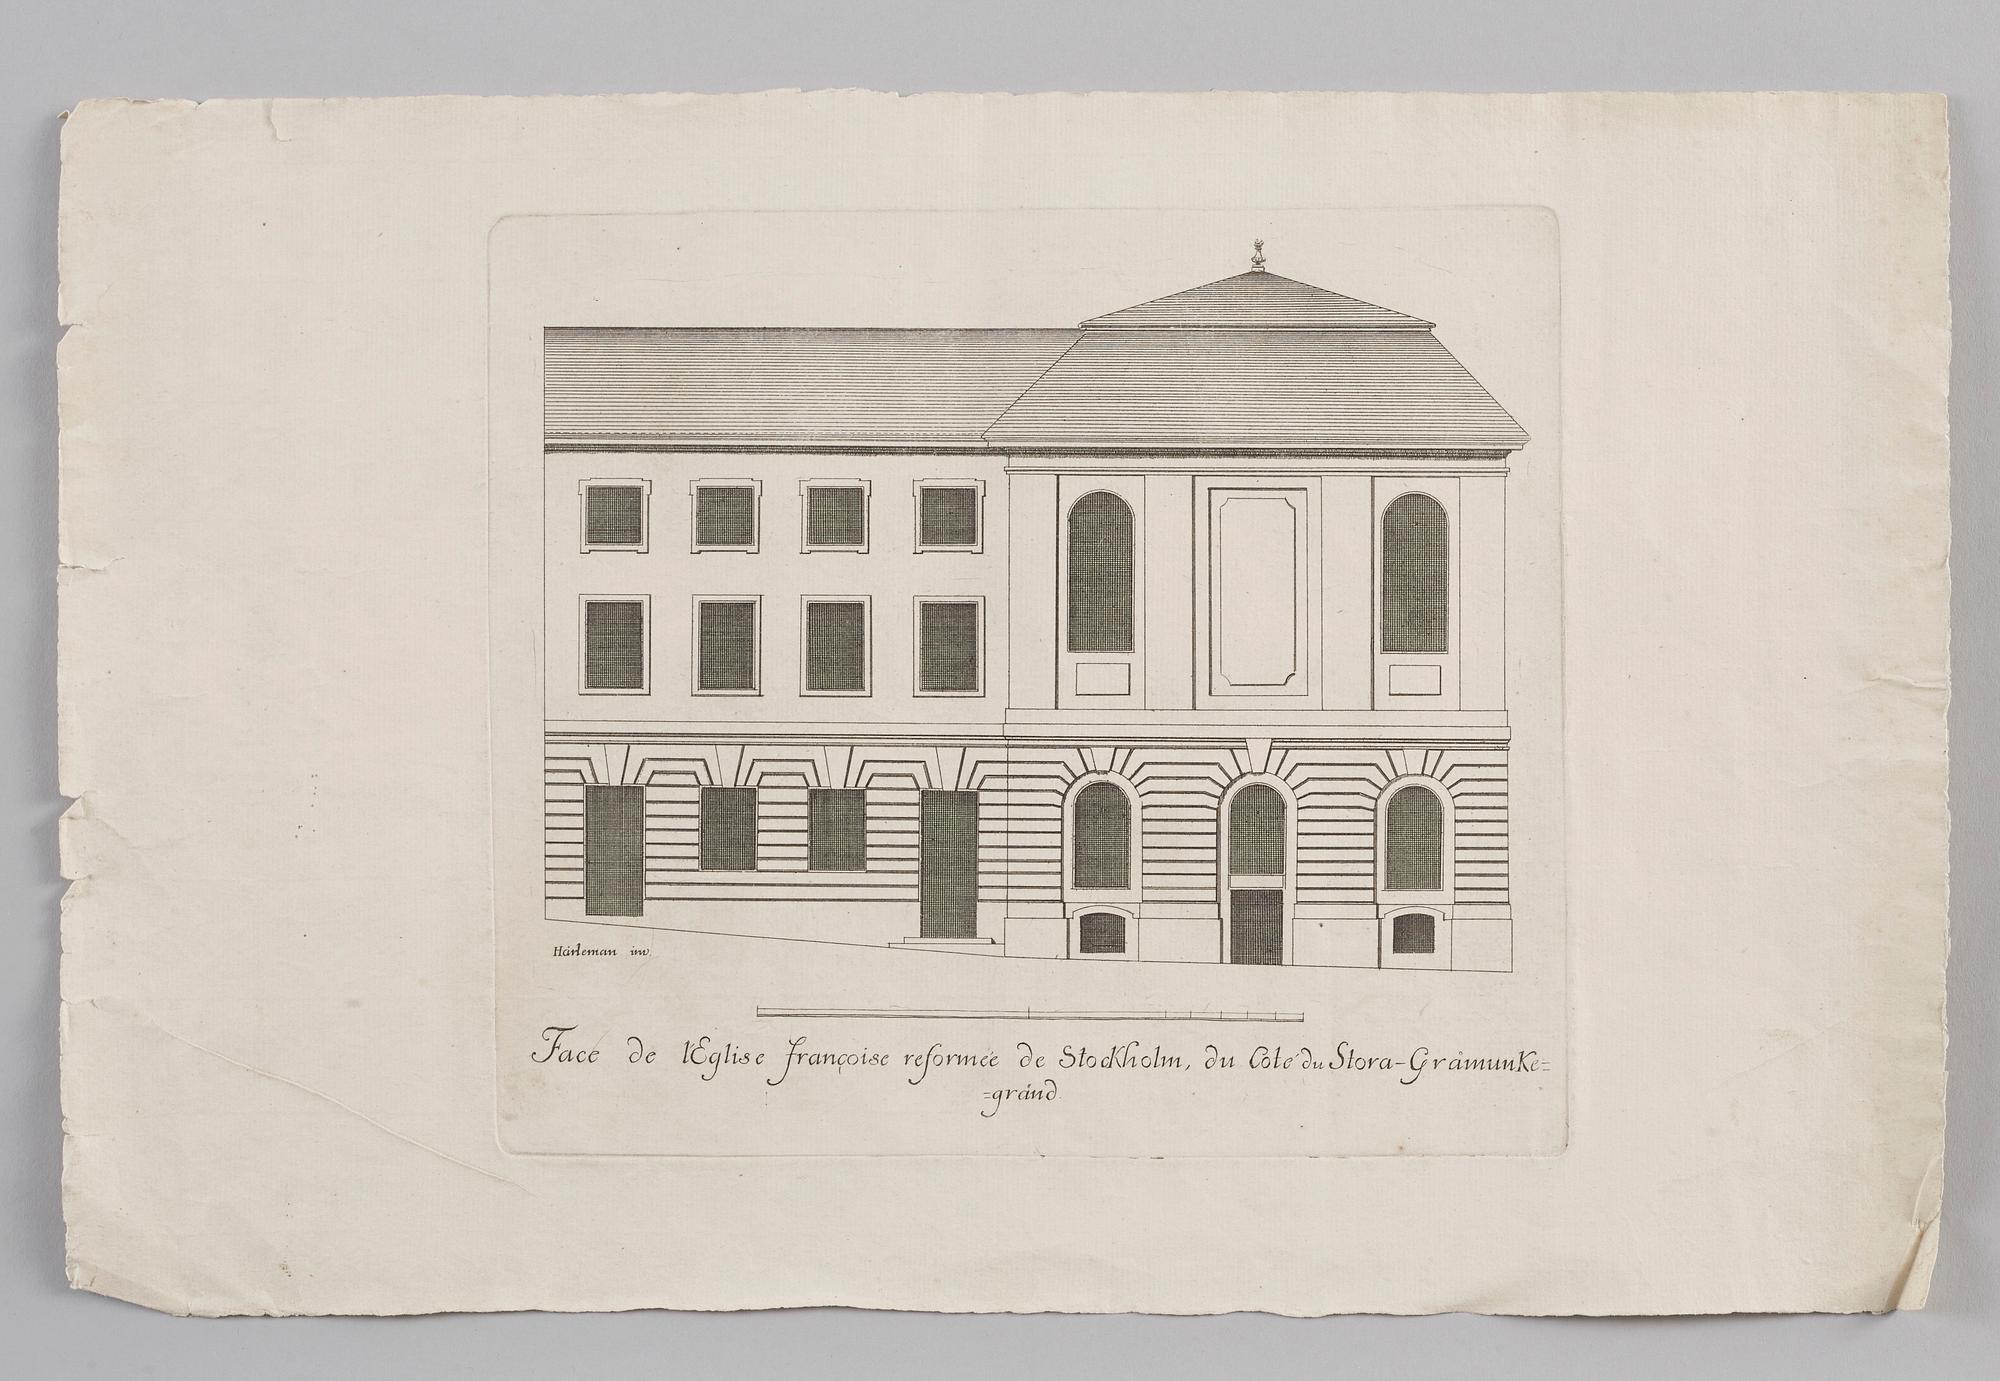 Härleman inv.
Face de l'Eglise françoise reformée de Stockholm, du Coté du Stora-Gråmunke=
=gränd.